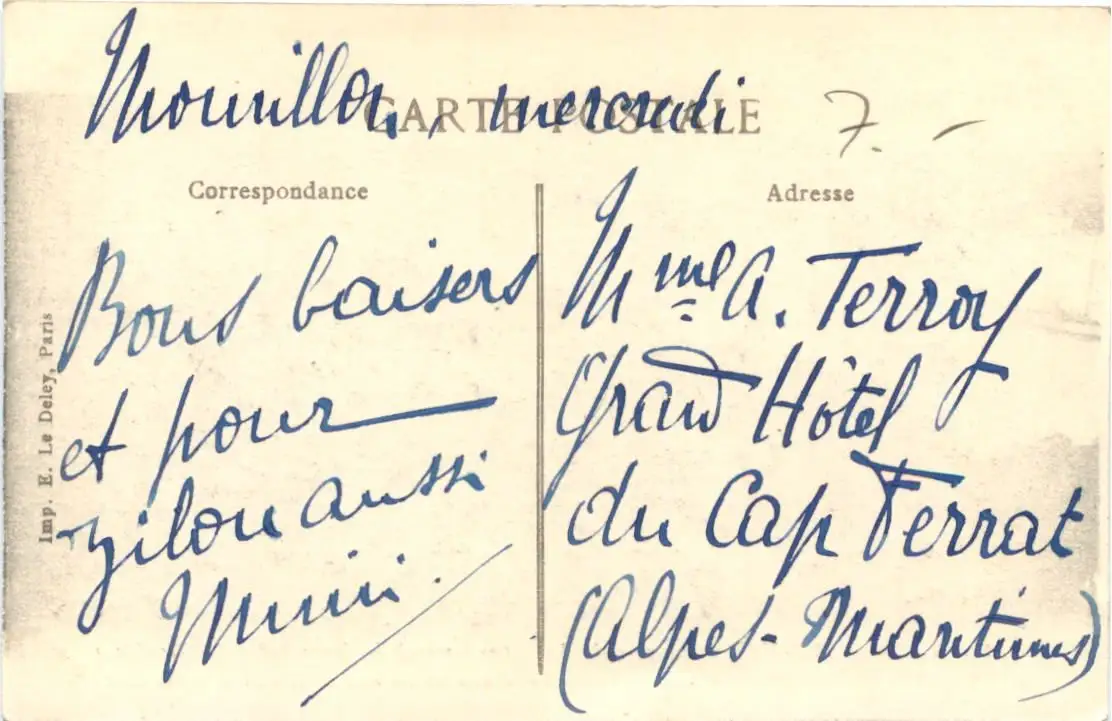 Mourillon, mercredi
CARTE POSTALE
7. -
Correspondance
Adresse
Bons baisers
et pour
Zilou aussi
Mimi.
Mme A. Terroy
Grand Hôtel
du Cap Ferrat
(Alpes-Maritimes)
Imp. E. Le Deley, Paris